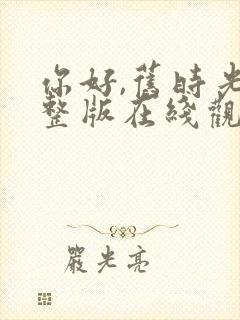 你好,舊時光
整版在綫觀
嚴光亮